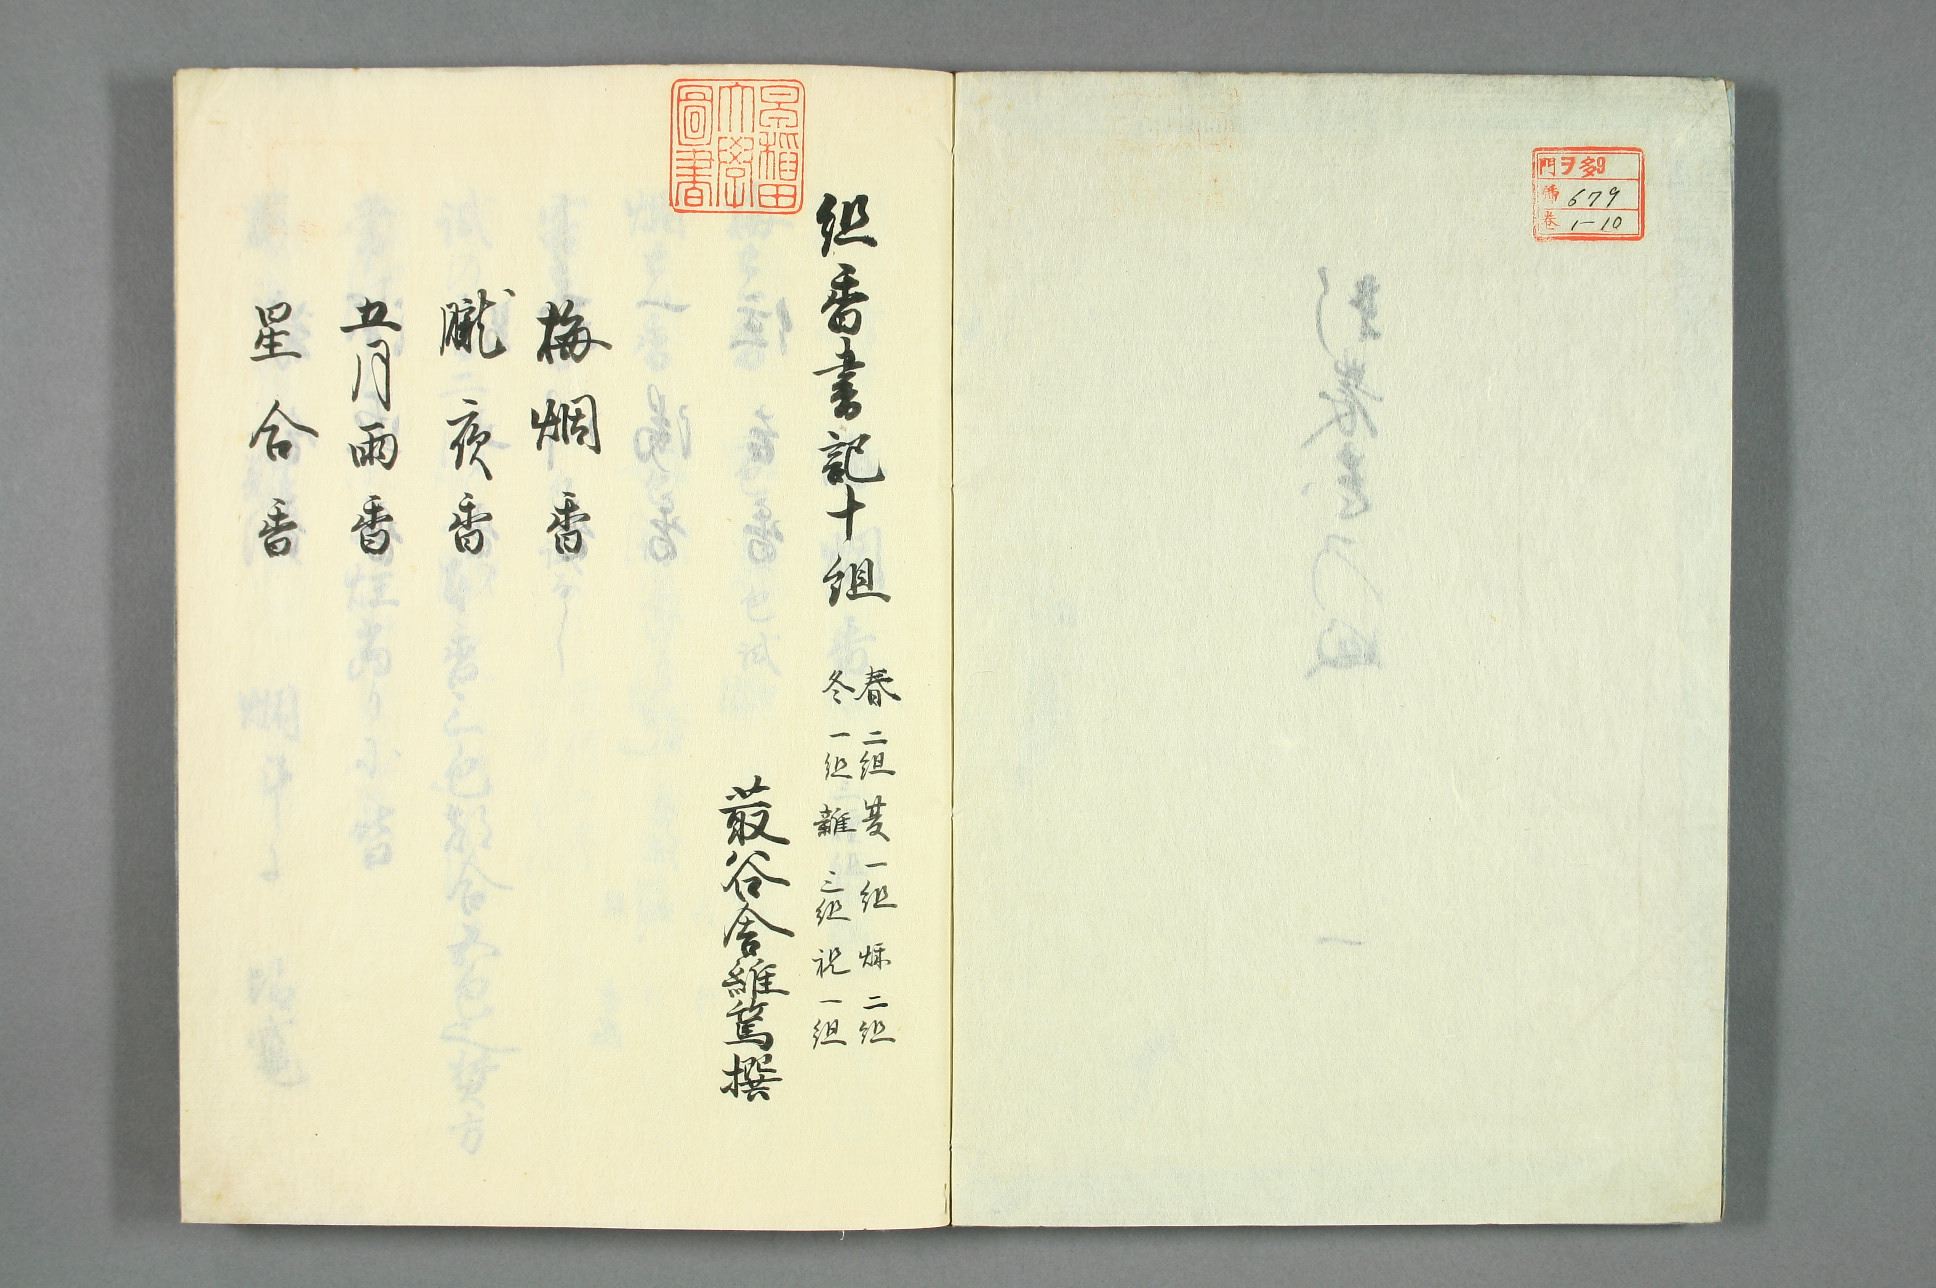 門ヲ9
號 679
卷 1-10
早稲田大學圖書
組香書記十組
春二組夏一組秌二組
冬一組雜三組祝一組
谷舎維篤撰
梅烟香
朧夜香
五月雨香
星合香